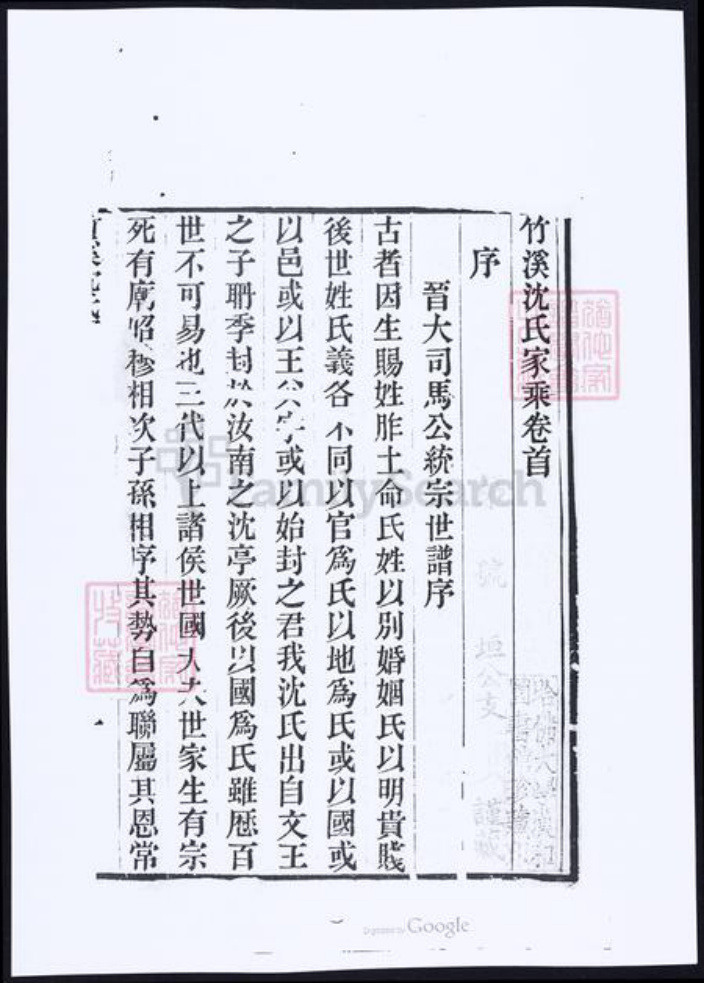 竹溪沈氏家乘卷首
序
晉大司馬公統宗世譜序
古者因生賜姓胙土命氏姓以別婚姻氏以明貴賤
後世姓氏義各不同以官爲氏以地爲氏或以國或
以邑或以王父字或以始封之君我沈氏出自文王
之子聃季封於汝南之沈亭厥後以國爲氏雖歷百
世不可易也三代以上諸侯世國大夫世家生有宗
死有廟昭穆相次子孫相序其勢自爲聯屬其恩常
垣公支
謹藏
FamilySearch
Digitized by Google